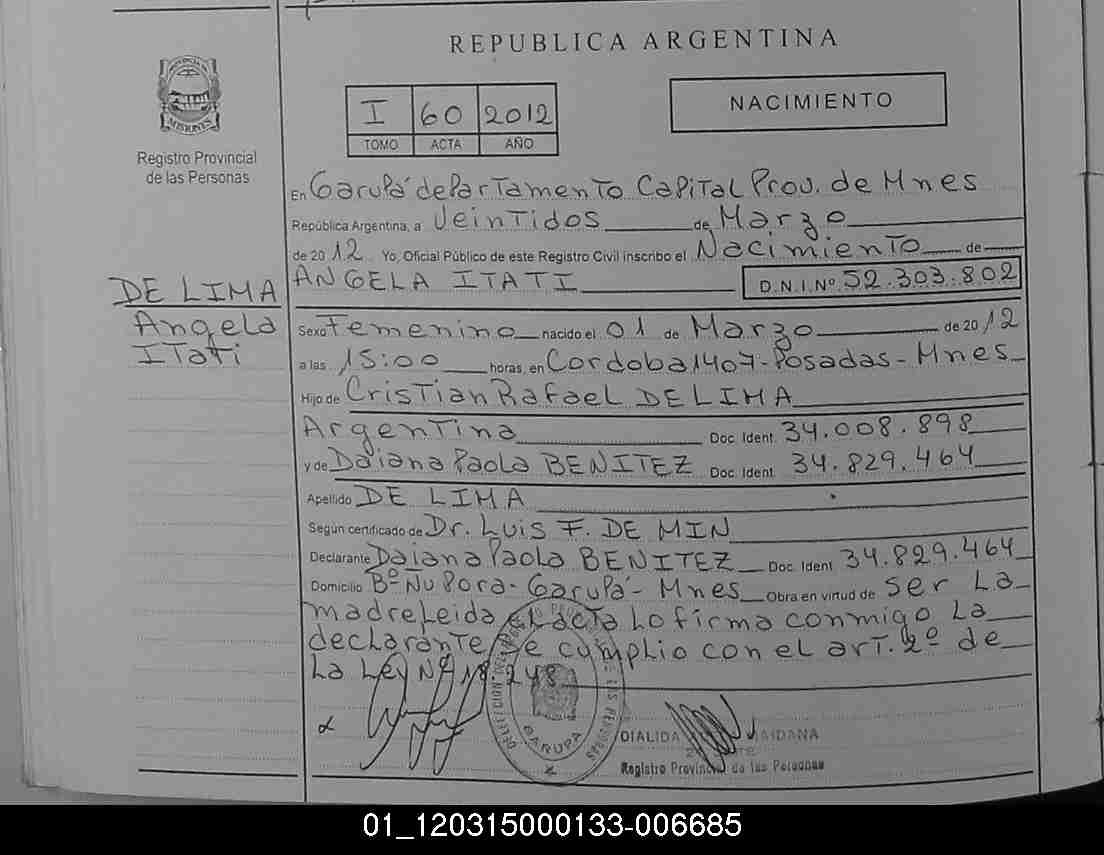 REPUBLICA ARGENTINA
PROVINCIA DE
MISIONES
Registro Provincial
de las Personas
I 60 2012
TOMO ACTA AÑO
NACIMIENTO
En Garupá departamento Capital Prov. de Mnes
República Argentina, a Veintidos de Marzo
de 2012 Yo, Oficial Público de este Registro Civil inscribo el Nacimiento de
ANGELA ITATI D.N.I.Nº 52.303.802
DE LIMA
Angela
Itati
Sexo Femenino nacido el 01 de Marzo de 2012
a las 15:00 horas, en Cordoba 1407-Posadas-Mnes
Hijo de Cristian Rafael DE LIMA
Argentina Doc. Ident. 34.008.898
y de Daiana Paola BENITEZ Doc. Ident. 34.829.464
Apellido DE LIMA
Según certificado de Dr. Luis F. DE MIN
Declarante Daiana Paola BENITEZ Doc. Ident. 34.829.464
Domicilio Bº Ñu Pora-Garupá-Mnes Obra en virtud de ser La
madre Leida el acta Lo firma conmigo La
declarante se cumplio con el art. 2º de
La Ley Nº 18.248
GARUPA
DIALIDA MAIDANA
Registro Provincial de las Personas
01_120315000133-006685